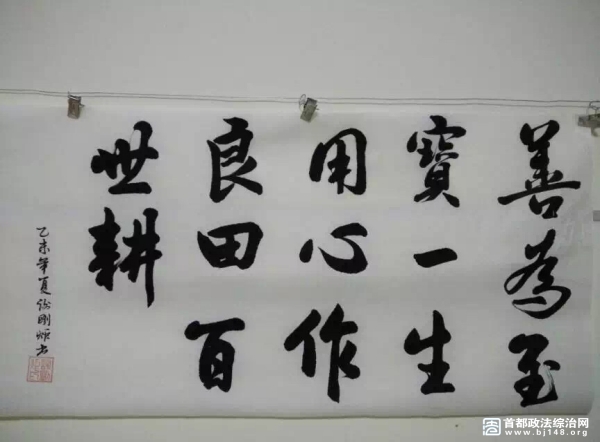 善為至
寶一生
用心作
良田百
世耕
乙未年夏
剛 书
首都政法综治网
www.bj148.org